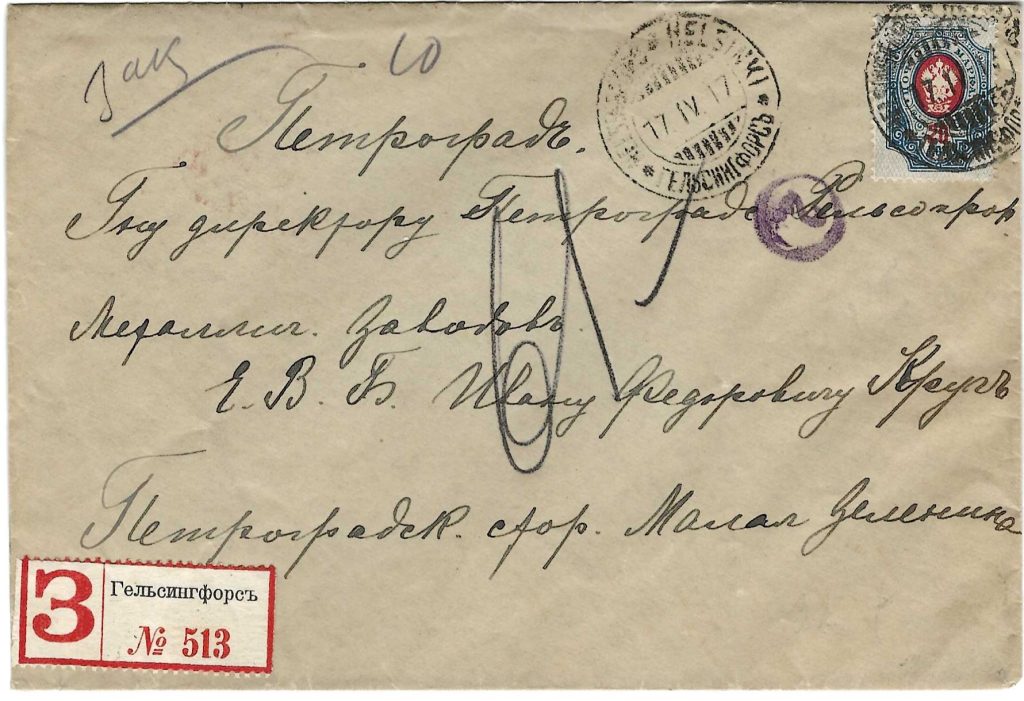 Зак 10
HELSINKI
17.IV.17
ГЕЛЬСИНГФОРСЪ
20
Петроградъ.
Гну директору Петроградс
Металлич. Заводовъ.
Е. В. Б. Ивану Федоровичу Кругъ
Петроградск. стор. Малая Зеленина
З
Гельсингфорсъ
№ 513